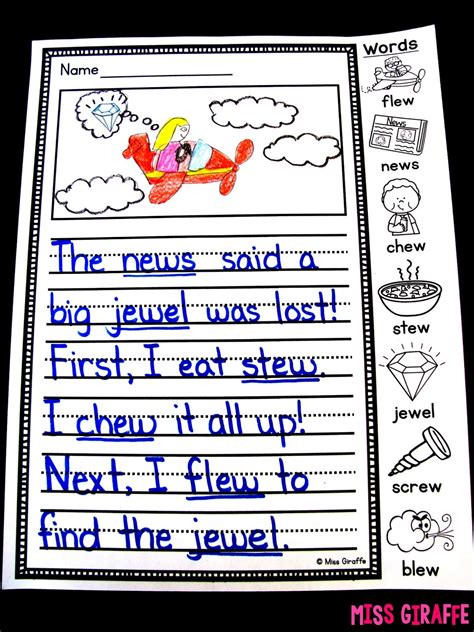 Name
The news said a
big jewel was lost!
First, I eat stew.
I chew it all up!
Next, I flew to
find the jewel.
© Miss Giraffe
Words
flew
News
news
chew
stew
jewel
screw
blew
MISS GIRAFFE